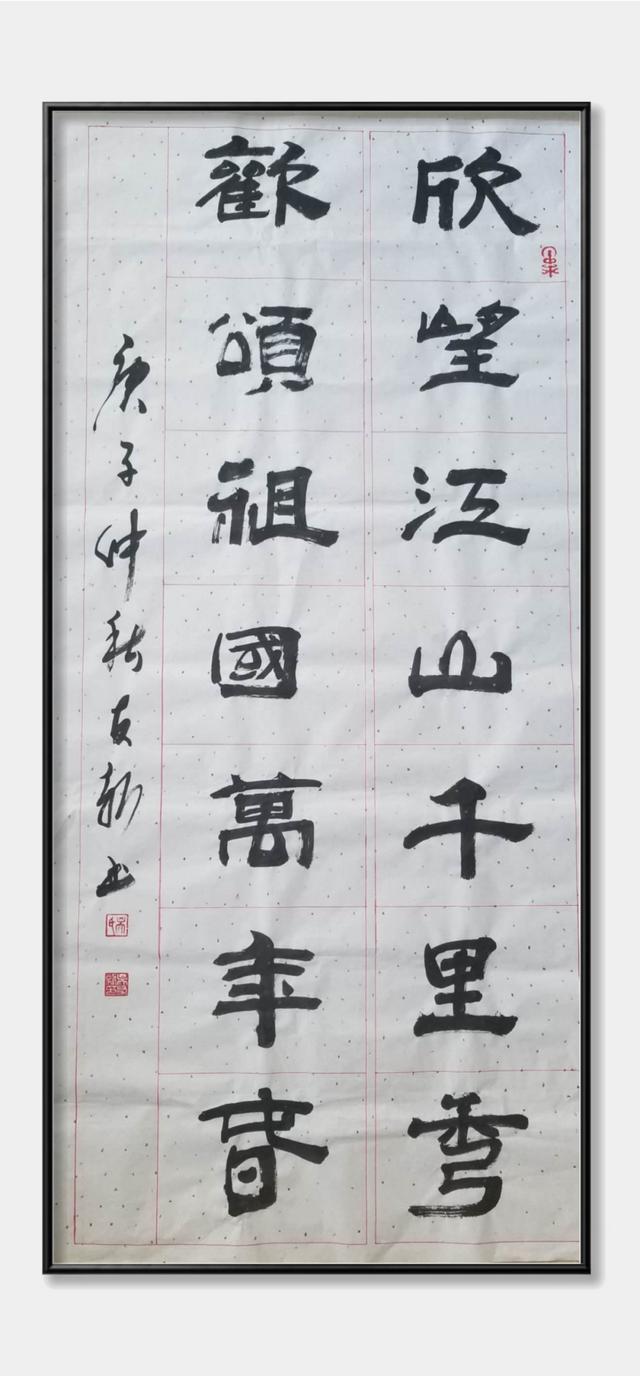 欣望江山千里秀
歡頌祖國萬年春
庚子仲秋友书